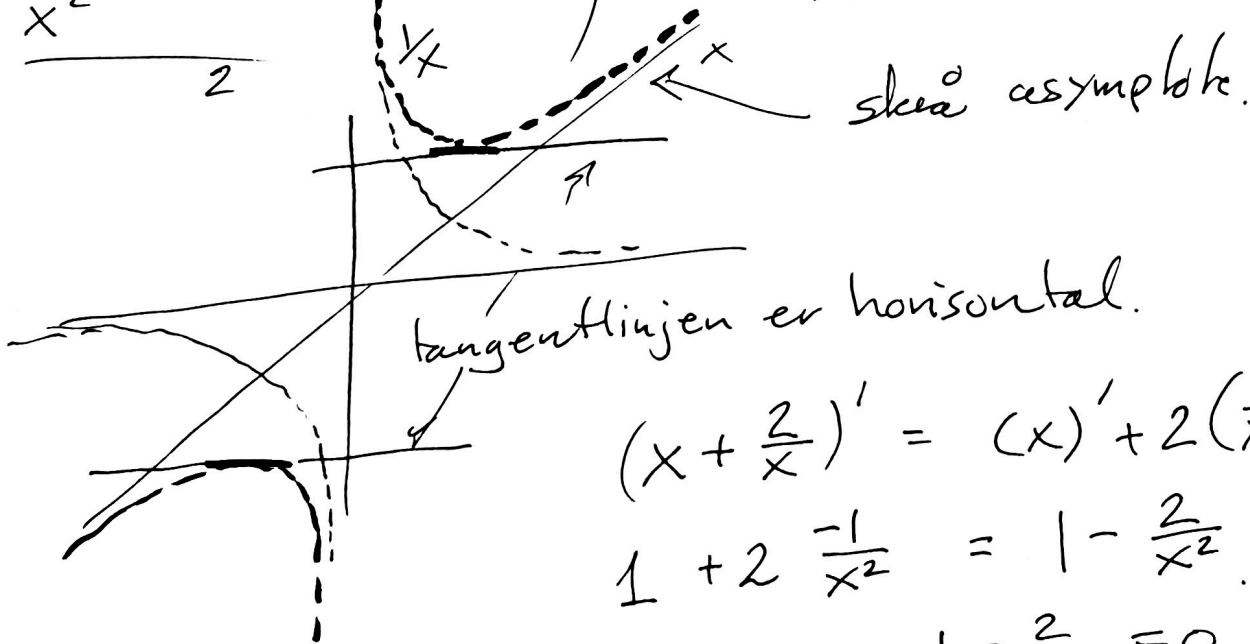 x²
2
1/x
x
skrå asymptote.
tangentlinjen er horisontal.
(x + 2/x)' = (x)' + 2(
1 + 2 -1/x² = 1 - 2/x².